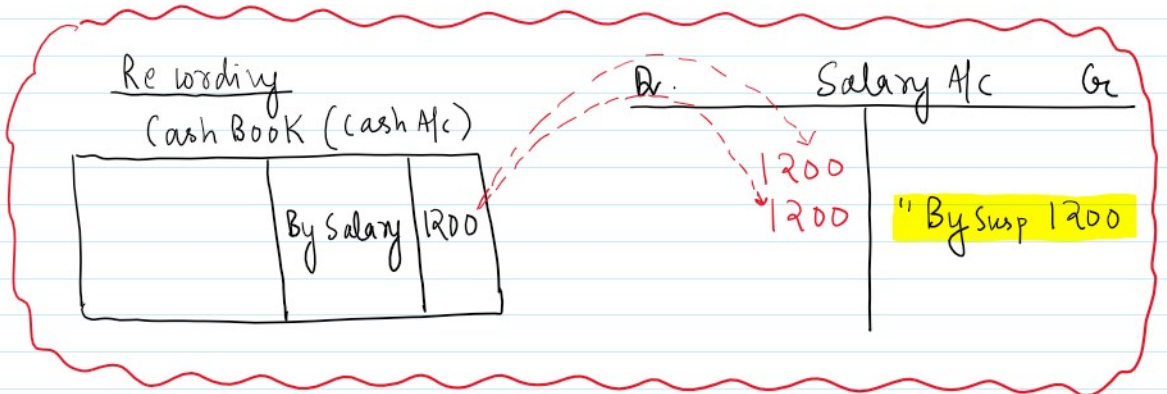 Recording
Cash Book (Cash A/c)
By Salary 1200
Dr. Salary A/c Cr
1200
1200
" By Susp 1200